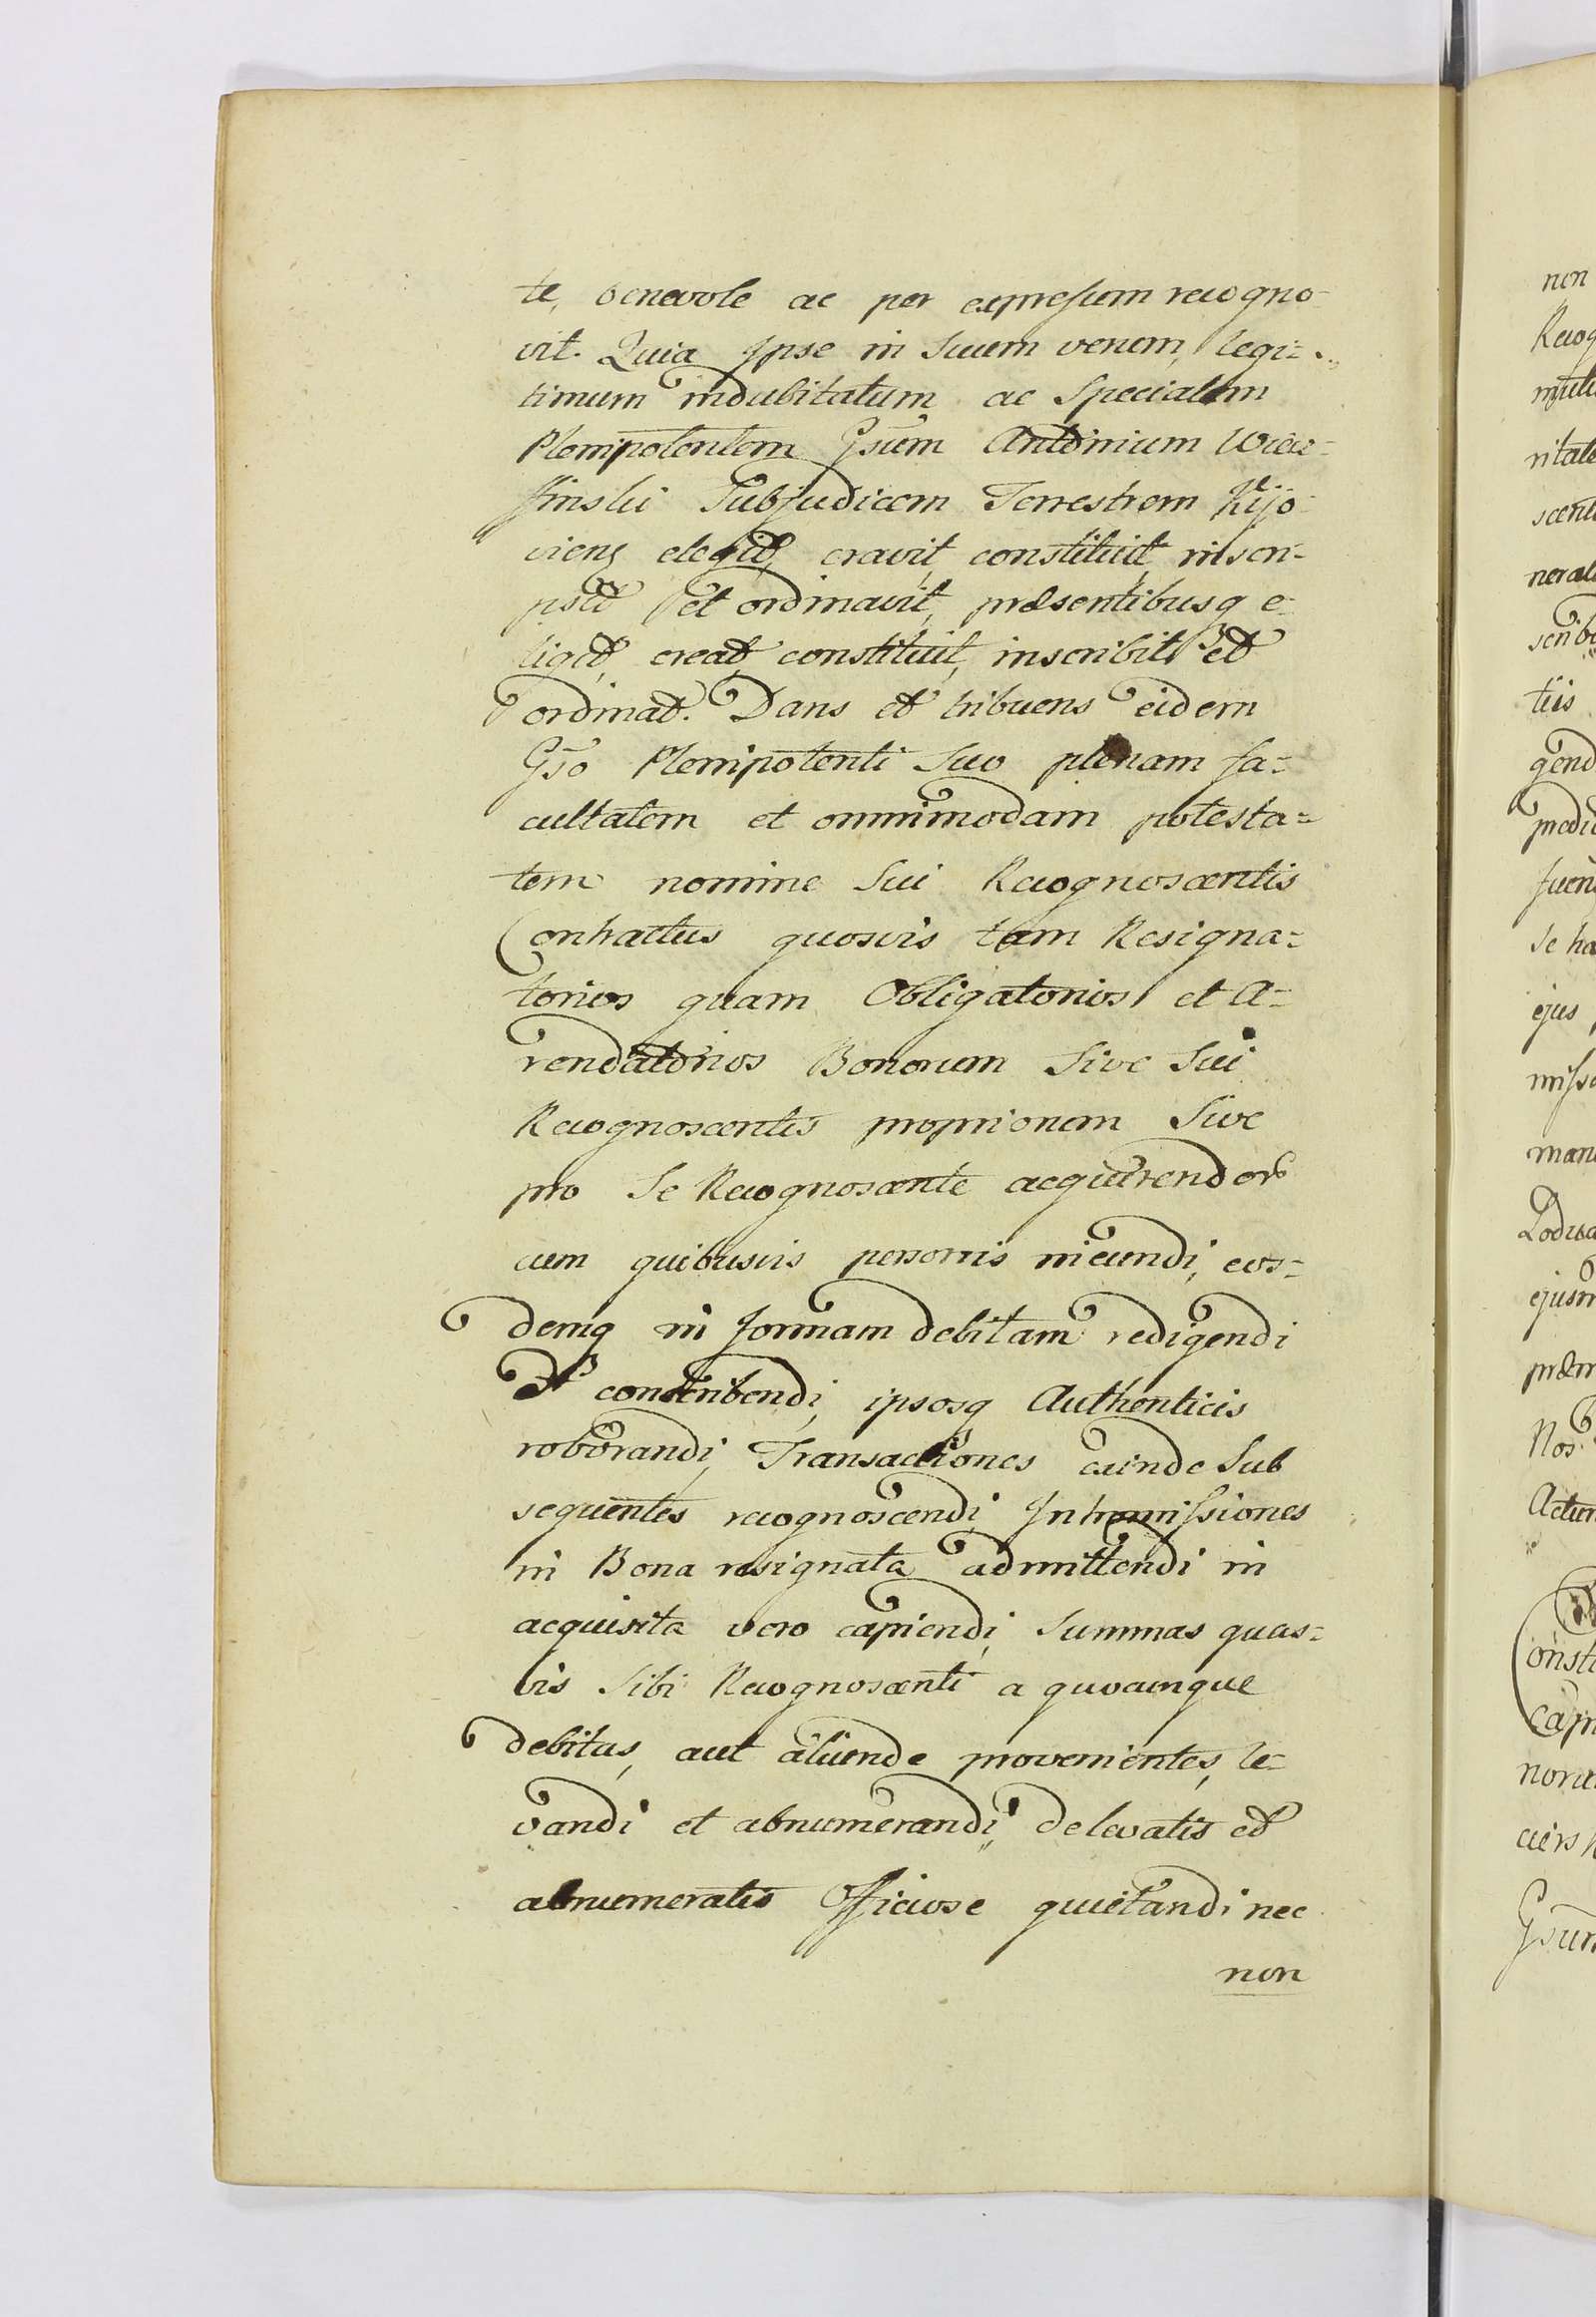 te, benevole ac per expressum recogno-
vit. Quia Ipse in Suum verum, legi-
timum indubitatum ac Specialem
Plenipotentem Gsum Antonium
Subjudicem Terrestrem Kijo-
viens elegit, creavit, constituit, inscri-
psit et ordinavit, præsentibusq e-
ligit, creat, constituit, inscribit et
ordinat. Dans et tribuens eidem
Gso Plenipotenti Suo plenam fa-
cultatem et omnimodam potesta-
tem nomine Sui Recognoscentis
Contractus quosvis tam Resigna-
torios quam Obligatorios et A-
rendatorios Bonorum Sive Sui
Recognoscentis propriorum Sive
pro Se Recognoscente acquirendor
cum quibusvis personis ineundi, eos-
demq in formam debitam redigendi
Et conscribendi, ipsosq Authenticis
roborandi, Transactiones exinde Sub
sequentes recognoscendi Intromissiones
in Bona resignata admittendi in
acquisita vero capiendi, Summas quas-
vis Sibi Recognoscenti a quocunque
debitas, aut aliunde provenientes, le-
vandi et abnumerandi, de levatis et
abnumeratis Officiose quietandi nec
non
non
Recog
tiis
gend
Se ha
ejus
Nos
Actum
Gsum